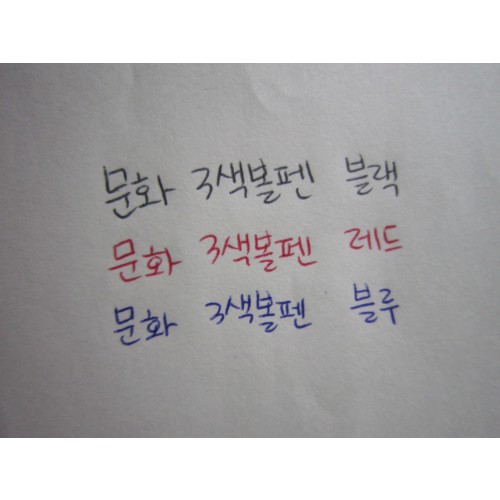 문화 3색볼펜 블랙
문화 3색볼펜 레드
문화 3색볼펜 블루